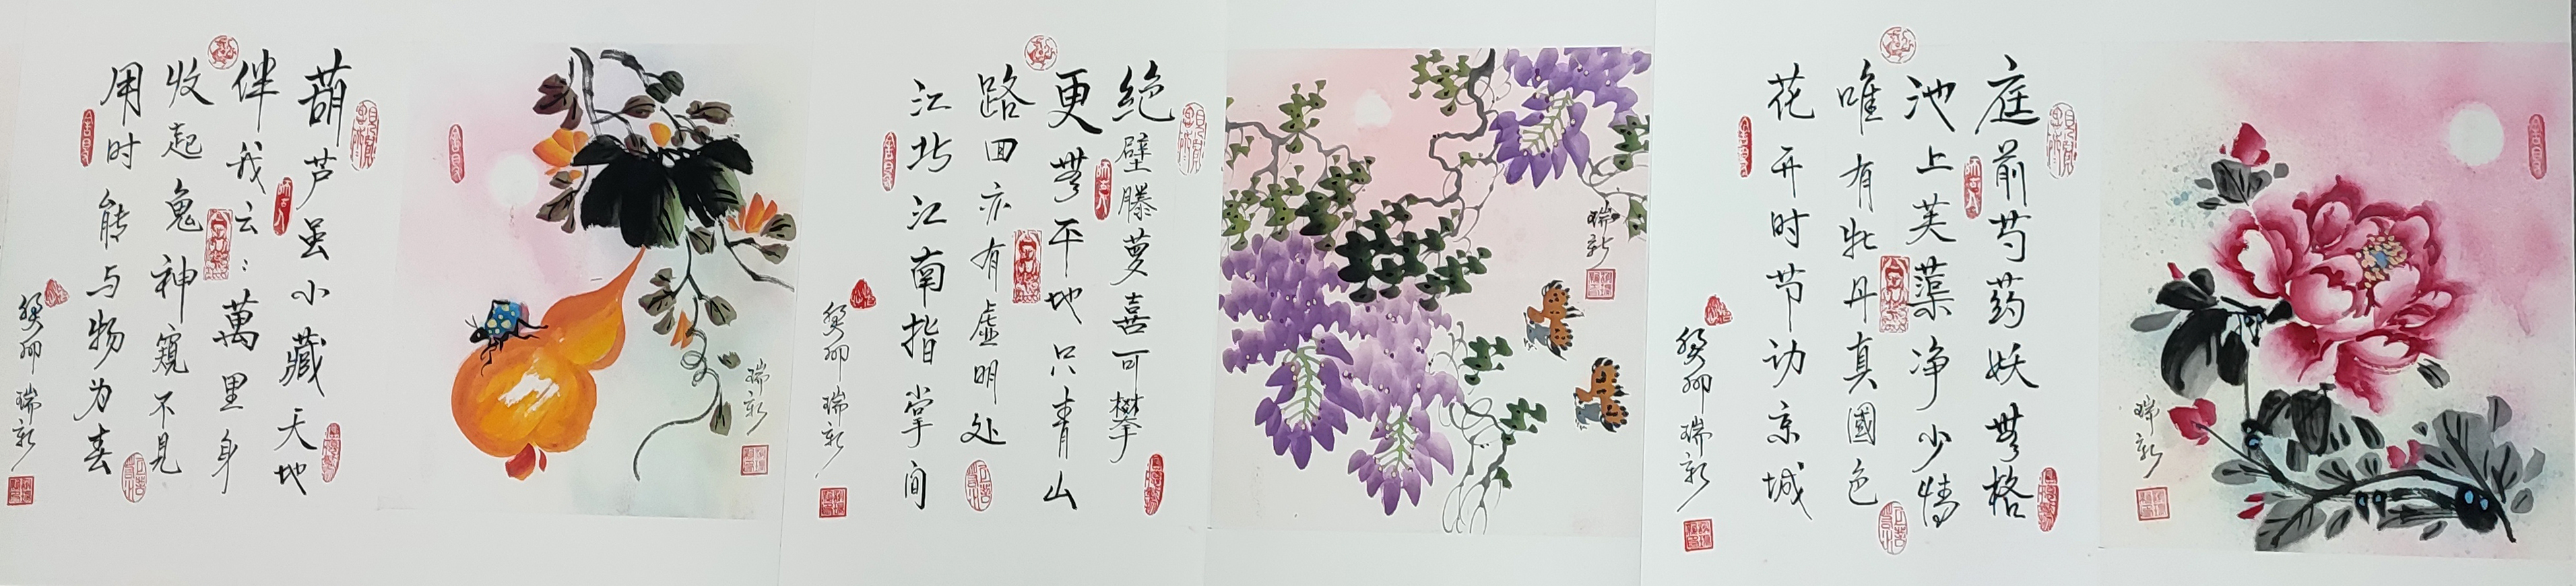 瑞新
庭前芍药妖無格
池上芙蕖净少情
唯有牡丹真國色
花开时节动京城
癸卯 瑞新
瑞新
絶壁藤萝喜可攀
更無平地只青山
路回亦有虚明处
江北江南指掌间
癸卯 瑞新
瑞新
葫芦虽小藏天地
伴我云:萬里身
收起鬼神窥不见
用时能与物为春
癸卯 瑞新